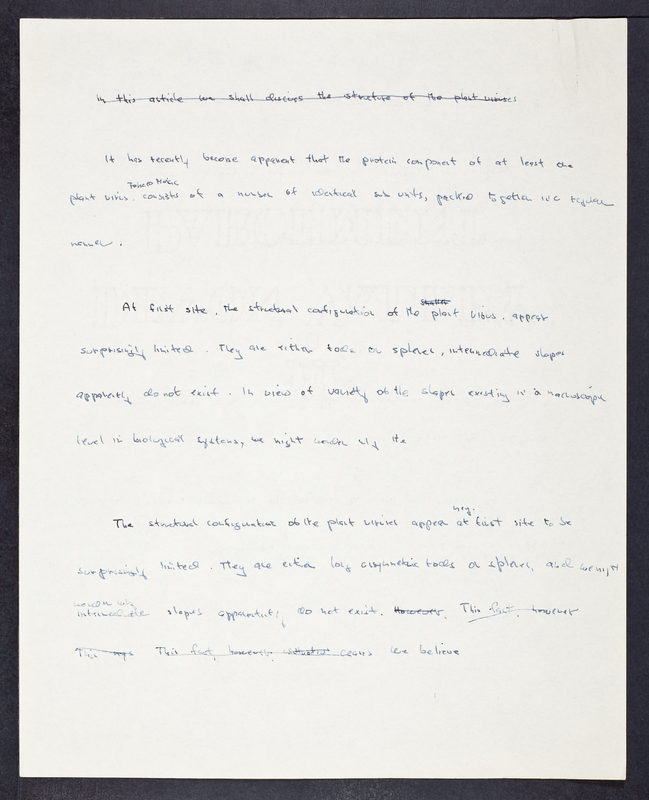 In this article we shall discuss the structure of the plant viruses
It has recently become apparent that the protein component of at least one
Tobacco Mosaic
plant virus, consists of a number of identical sub units, packed together in a regular
manner.
At first site, the structural configuration of the plant virus, appear
surprisingly limited. They are either rods or spheres, intermediate shapes
apparently do not exist. In view of variety of the shapes existing in a macroscopic
level in biological systems, we might wonder why the
The structural configurations of the plant viruses appear at first site to be
surprisingly limited. They are either long asymmetric rods or spheres, and we might
wonder why
intermediate shapes apparently do not exist. However, This fact, however
This This fact, however, we believe